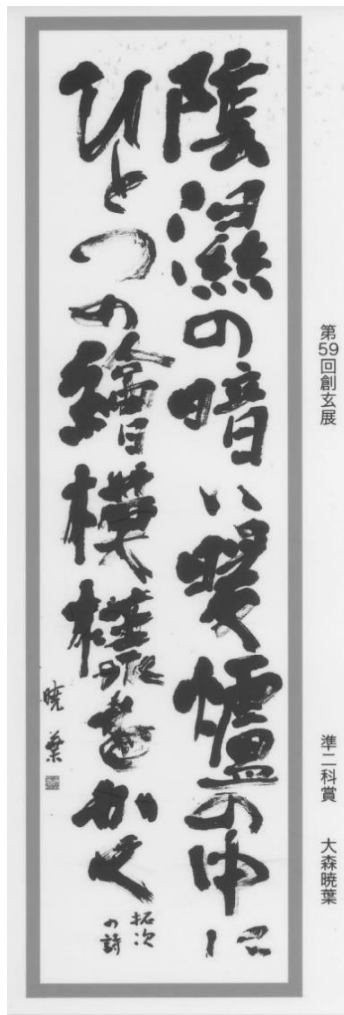 陰濕の暗い暖爐の中に
ひとつの繪模様をかく
拓次
の詩
暁葉
第59回創玄展
準二科賞 大森暁葉